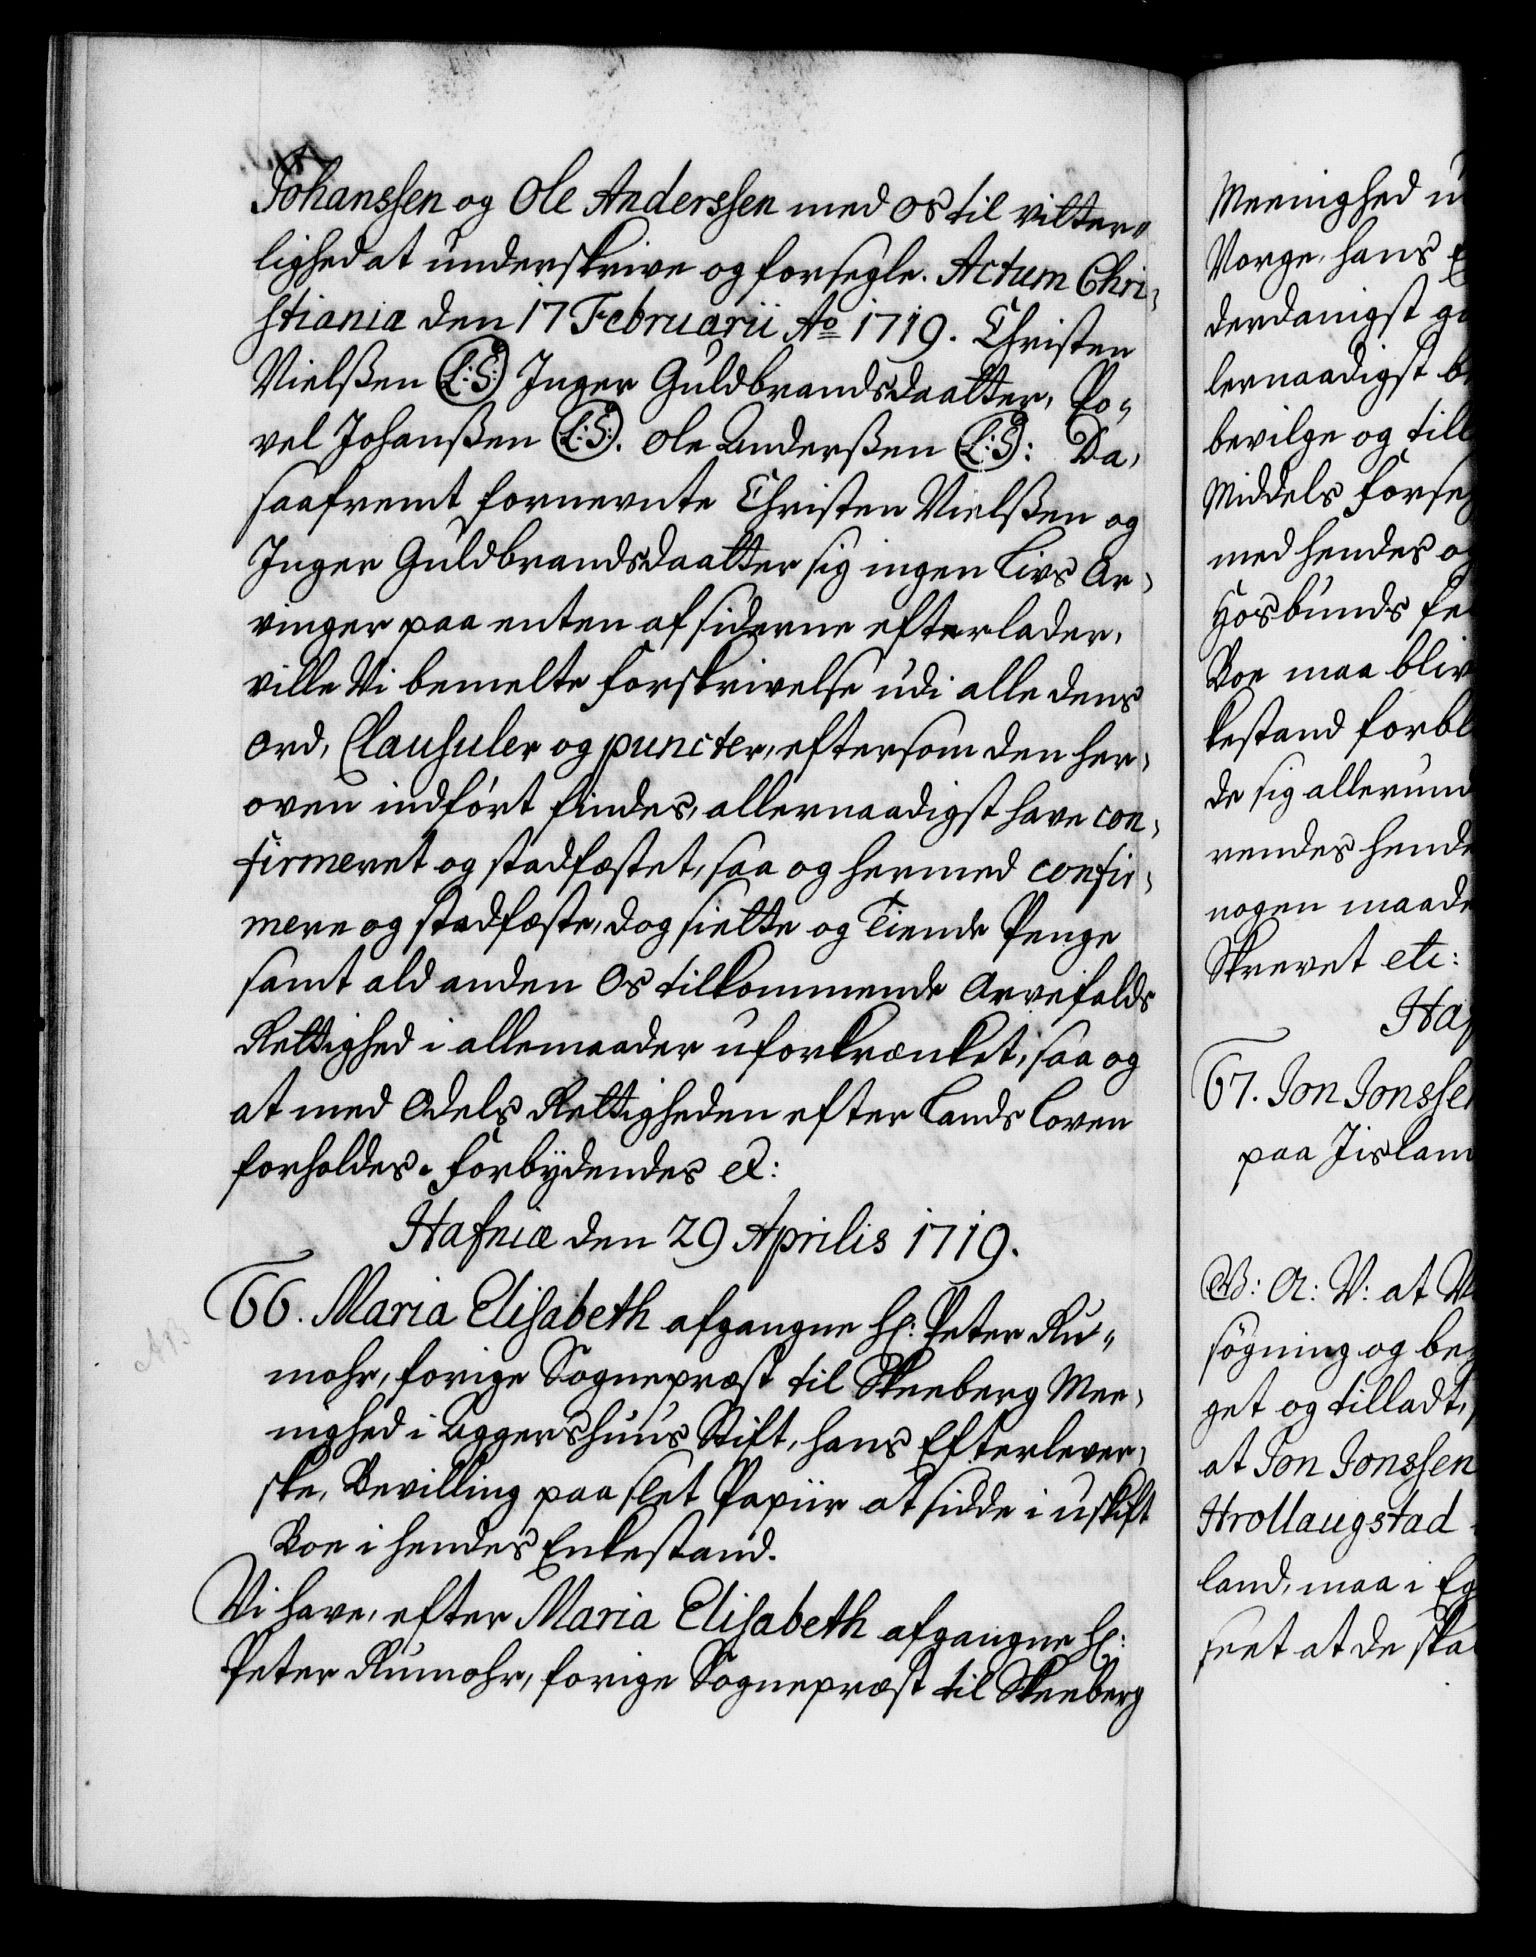 Johanssen og Ole Anderssen med os til vitter„
lighed at underskrive og forsegle. Actum Chri„
stianiæ den 17 Februarii Ao 1719. Christen
Nielßen (L:S:) Inger Guldbrandsdaatter, Po„
vel Johanßen (L:S:). Ole Anderßen (L:S): Da,
saafremt fornevnte Christen Nielßen og
Inger Guldbrandsdaatter sig ingen Livs Ar„
vinger paa enten af siderne efterlader,
ville Vi bemelte forskrivelse udi alle dens
ord, Clausuler og puncter, eftersom den her„
oven indført findes, allernaadigst have con„
firmeret og stadfæstet, saa og hermed confir„
mere og stadfæste, dog siette og Tiende Penge
samt ald anden Os tilkommende Arvefalds
Rettighed i allemaader uforkrænket, saa og
at med Odels Rettigheden efter Lands Loven
forholdes. Forbydendes et:
Hafniæ den 29 Aprilis 1719.
66. Maria Elisabeth afgangne Hr: Peter Ru„
mohr, forige Sognepræst til Skeeberg Mee„
nighed i Aggershuus Stift, hans Efterlever„
ske, Bevilling paa slet Papiir at sidde i uskift
Boe i hendes Enkestand.
Vi have, efter Maria Elisabeth afgangne Hr:
Peter Rumohr, forige Sognepræst til Skeeberg
Meenighed u
Norge, hans E
derdanigst g
lernaadigst b
bevilge og till
Middels forse
med hendes o
Hosbunds fe
Boe maa bliv
kestand forbl
de sig allerund
rendes hende
nogen maade
Skrevet etc:
Haf
67. Jon Jonssen
paa Jisland
G: A: V: at V
søgning og be
get og tilladt,
at Jon Jonssen
Hrollaugstad
land, maa i Eg
seet at de ska